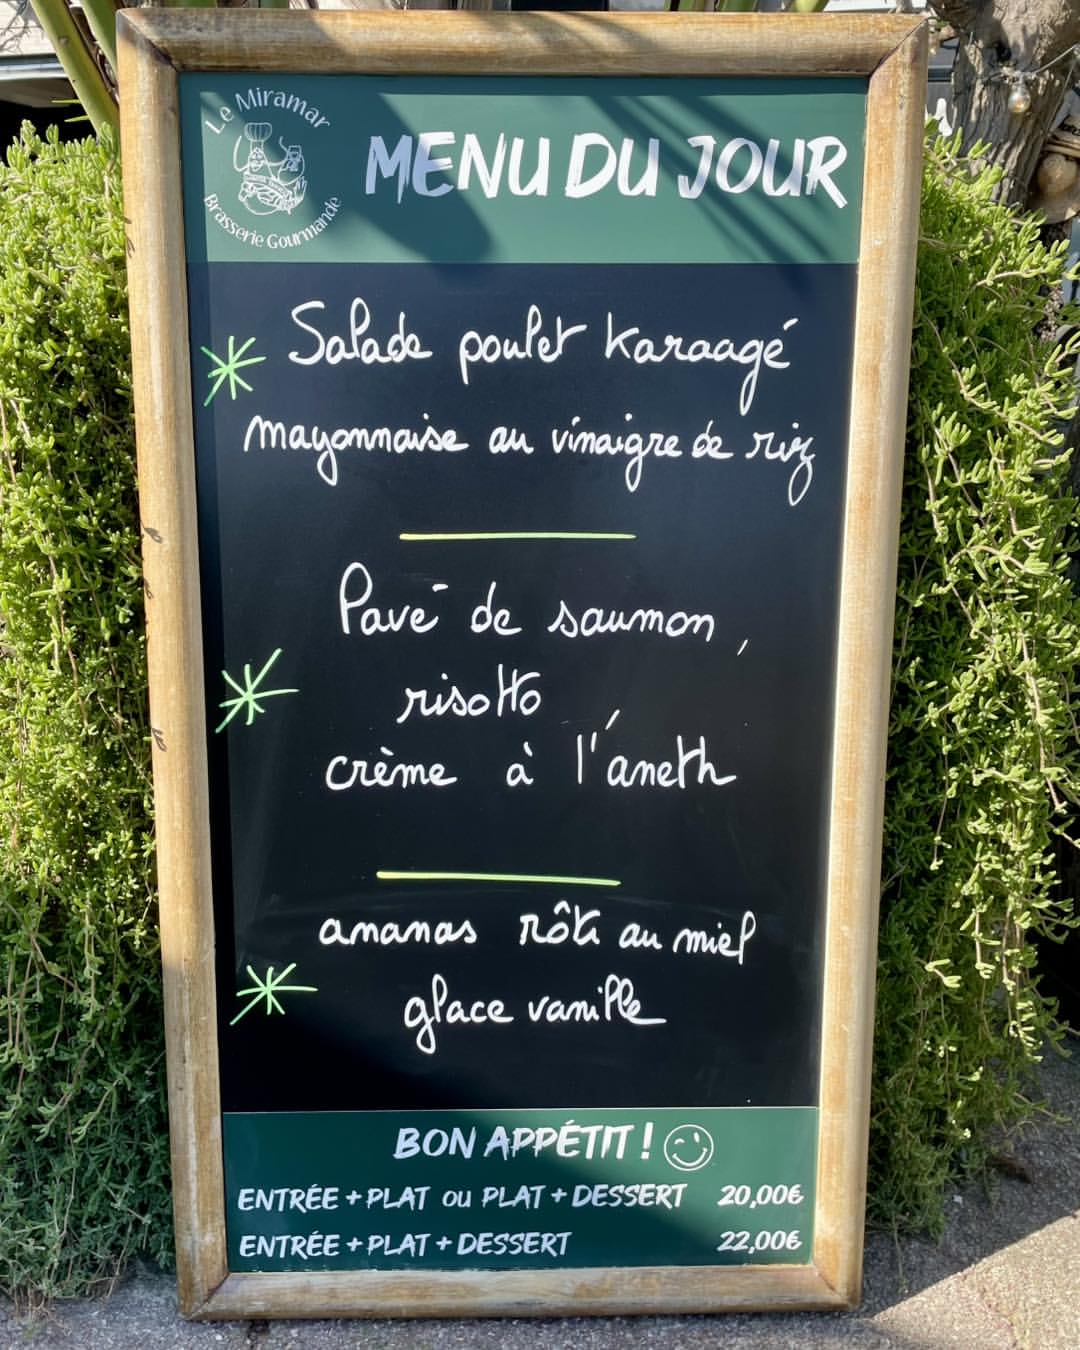 Le Miramar
Brasserie Gourmande
MENU DU JOUR
Salade poulet Karaagé
mayonnaise au vinaigre de riz
Pavé de saumon,
risotto
crème à l'aneth
ananas rôti au miel
glace vanille
BON APPÉTIT !
ENTRÉE + PLAT OU PLAT + DESSERT 20,00€
ENTRÉE + PLAT + DESSERT 22,00€